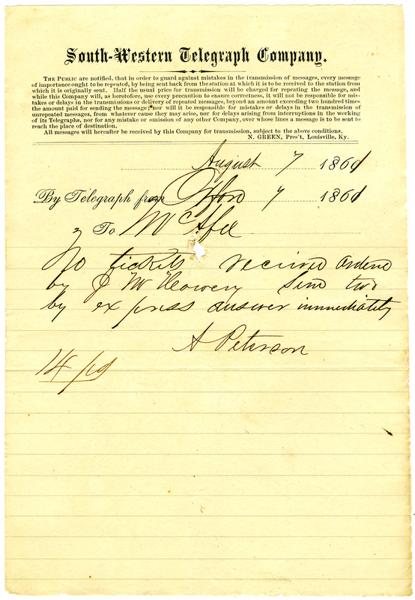 South-Western Telegraph Company.
The Public are notified, that in order to guard against mistakes in the transmission of messages, every message
of importance ought to be repeated, by being sent back from the station at which it is to be received to the station from
which it is originally sent. Half the usual price for transmission will be charged for repeating the message, and
while this Company will, as heretofore, use every precaution to ensure correctness, it will not be responsible for mis-
takes or delays in the transmissions or delivery of repeated messages, beyond an amount exceeding two hundred times
the amount paid for sending the message; nor will it be responsible for mistakes or delays in the transmission of
unrepeated messages, from whatever cause they may arise, nor for delays arising from interruptions in the working
of its Telegraphs, nor for any mistake or omission of any other Company, over whose lines a message is to be sent to
reach the place of destination.
All messages will hereafter be received by this Company for transmission, subject to the above conditions.
N. GREEN, Pres't, Louisville, Ky.
August 7 1861
By Telegraph from 7 1861
To McAfee
No tickets received ordered
by J M Send two
by express answer immediately
A Peterson
14/